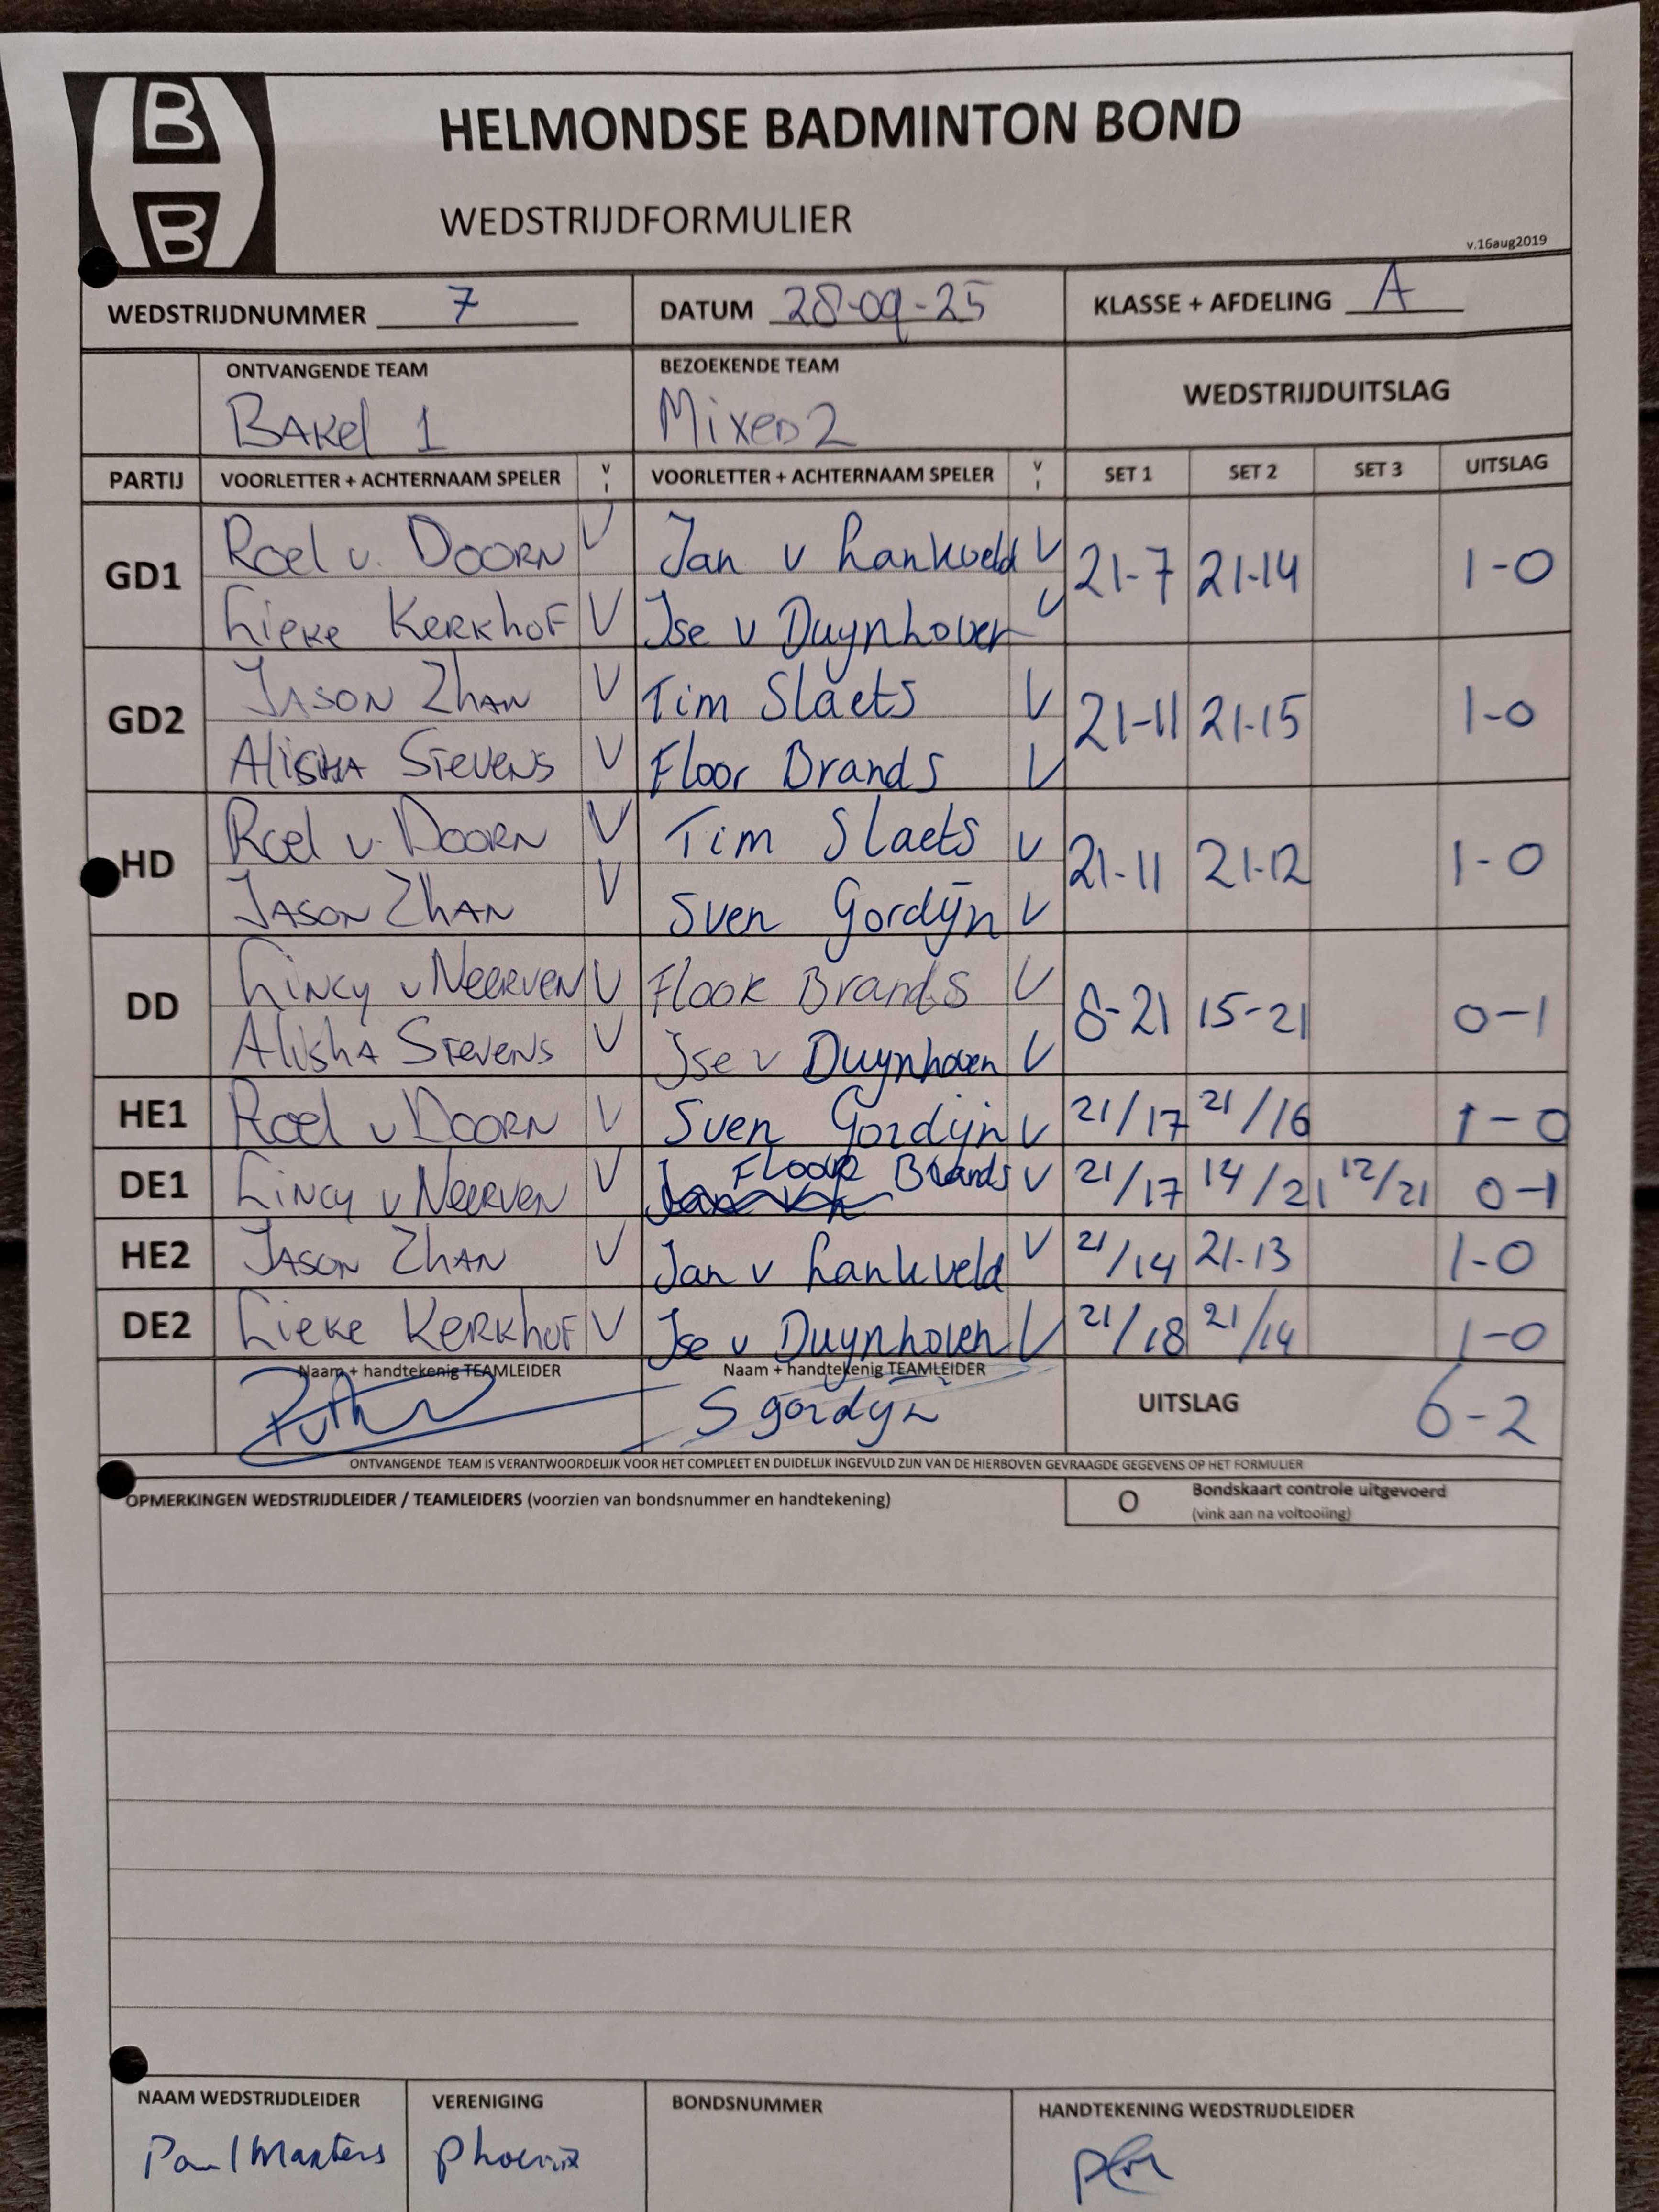 B
B
HELMONDSE BADMINTON BOND
WEDSTRIJDFORMULIER
v.16aug2019
WEDSTRIJDNUMMER 7 DATUM 28-09-25 KLASSE + AFDELING A
ONTVANGENDE TEAM BEZOEKENDE TEAM WEDSTRIJDUITSLAG
BAKel 1 Mixed 2
PARTIJ VOORLETTER + ACHTERNAAM SPELER V I VOORLETTER + ACHTERNAAM SPELER V I SET 1 SET 2 SET 3 UITSLAG
GD1 Roel v. DOORN V Jan v Lankveld V 21-7 21-14 1-0
Lieke Kerkhof V Ise v Duynhoven V
GD2 JASON ZHAN V Tim Slaets V 21-11 21-15 1-0
Alisha Stevens V Floor Brands V
HD Roel v. DOORN V Tim Slaets V 21-11 21-12 1-0
JASON ZHAN V Sven Gordijn V
DD Lincy v Neerven V Floor Brands V 8-21 15-21 0-1
Alisha Stevens V Ise v Duynhoven V
HE1 Roel v DOORN V Sven Gordijn V 21/17 21/16 1-0
DE1 Lincy v Neerven V Floor Brands V 21/17 14/21 12/21 0-1
HE2 JASON ZHAN V Jan v Lankveld V 21/14 21-13 1-0
DE2 Lieke Kerkhof V Ise v Duynhoven V 21/18 21/14 1-0
Naam + handtekenig TEAMLEIDER Naam + handtekenig TEAMLEIDER UITSLAG 6-2
S gordijn
ONTVANGENDE TEAM IS VERANTWOORDELIJK VOOR HET COMPLEET EN DUIDELIJK INGEVULD ZIJN VAN DE HIERBOVEN GEVRAAGDE GEGEVENS OP HET FORMULIER
OPMERKINGEN WEDSTRIJDLEIDER / TEAMLEIDERS (voorzien van bondsnummer en handtekening) O Bondskaart controle uitgevoerd
(vink aan na voltooiing)
NAAM WEDSTRIJDLEIDER VERENIGING BONDSNUMMER HANDTEKENING WEDSTRIJDLEIDER
Paul Martens Phoenix